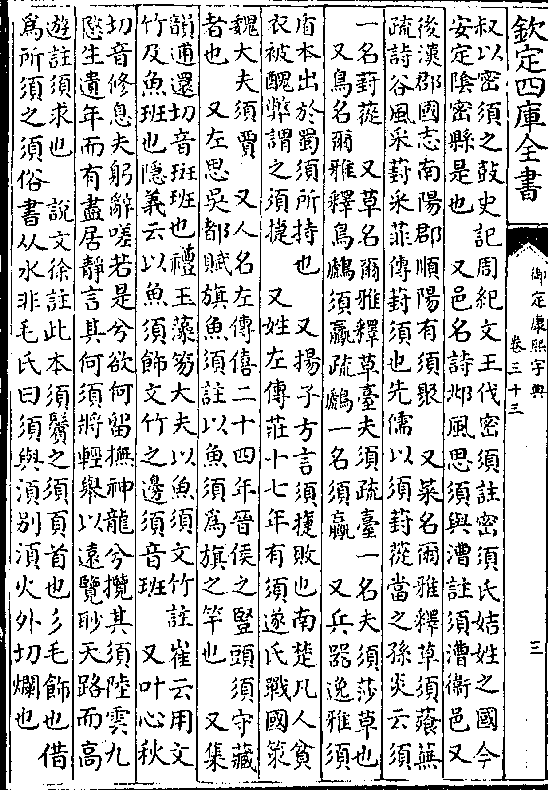 欽定四庫全書
御定康熙字典
卷三十三
三
叔以密須之鼓史記周紀文王伐密須註密須氏姞姓之國今
安定陰密縣是也　又邑名詩邶風思須與漕註須漕衞邑又
後漢郡國志南陽郡順陽有須聚　又菜名爾雅釋草須葑蕪
疏詩谷風采葑采菲傳葑須也先儒以須葑蓯當之孫炎云須
一名葑蓯　又草名爾雅釋草臺夫須疏臺一名夫須莎草也
又鳥名爾雅釋鳥鸕須鸁疏鸕一名須鸁　又兵器逸雅須
盾本出於蜀須所持也　又揚子方言須捷敗也南楚凡人貧
衣被醜弊謂之須捷　又姓左傳莊十七年有須遂氏戰國策
魏大夫須賈　又人名左傳僖二十四年晉侯之豎頭須守藏
者也　又左思吳都賦旗魚須註以魚須爲旗之竿也　又集
韻逋還切音斑班也禮玉藻笏大夫以魚須文竹註崔云用文
竹及魚班也隱義云以魚須飾文竹之邊須音班　又叶心秋
切音修息夫躬辭嗟若是兮欲何留撫神龍兮攬其須陸雲九
愍生遺年而有盡居靜言其何須將輕舉以遠覽眇天路而高
遊註須求也　說文徐註此本須鬢之須頁首也彡毛飾也借
爲所須之須俗書从水非毛氏曰須與湏別湏火外切爛也